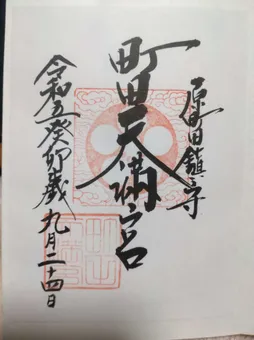 原町田鎮守
町田天満宮
令和五癸卯歳九月二十四日